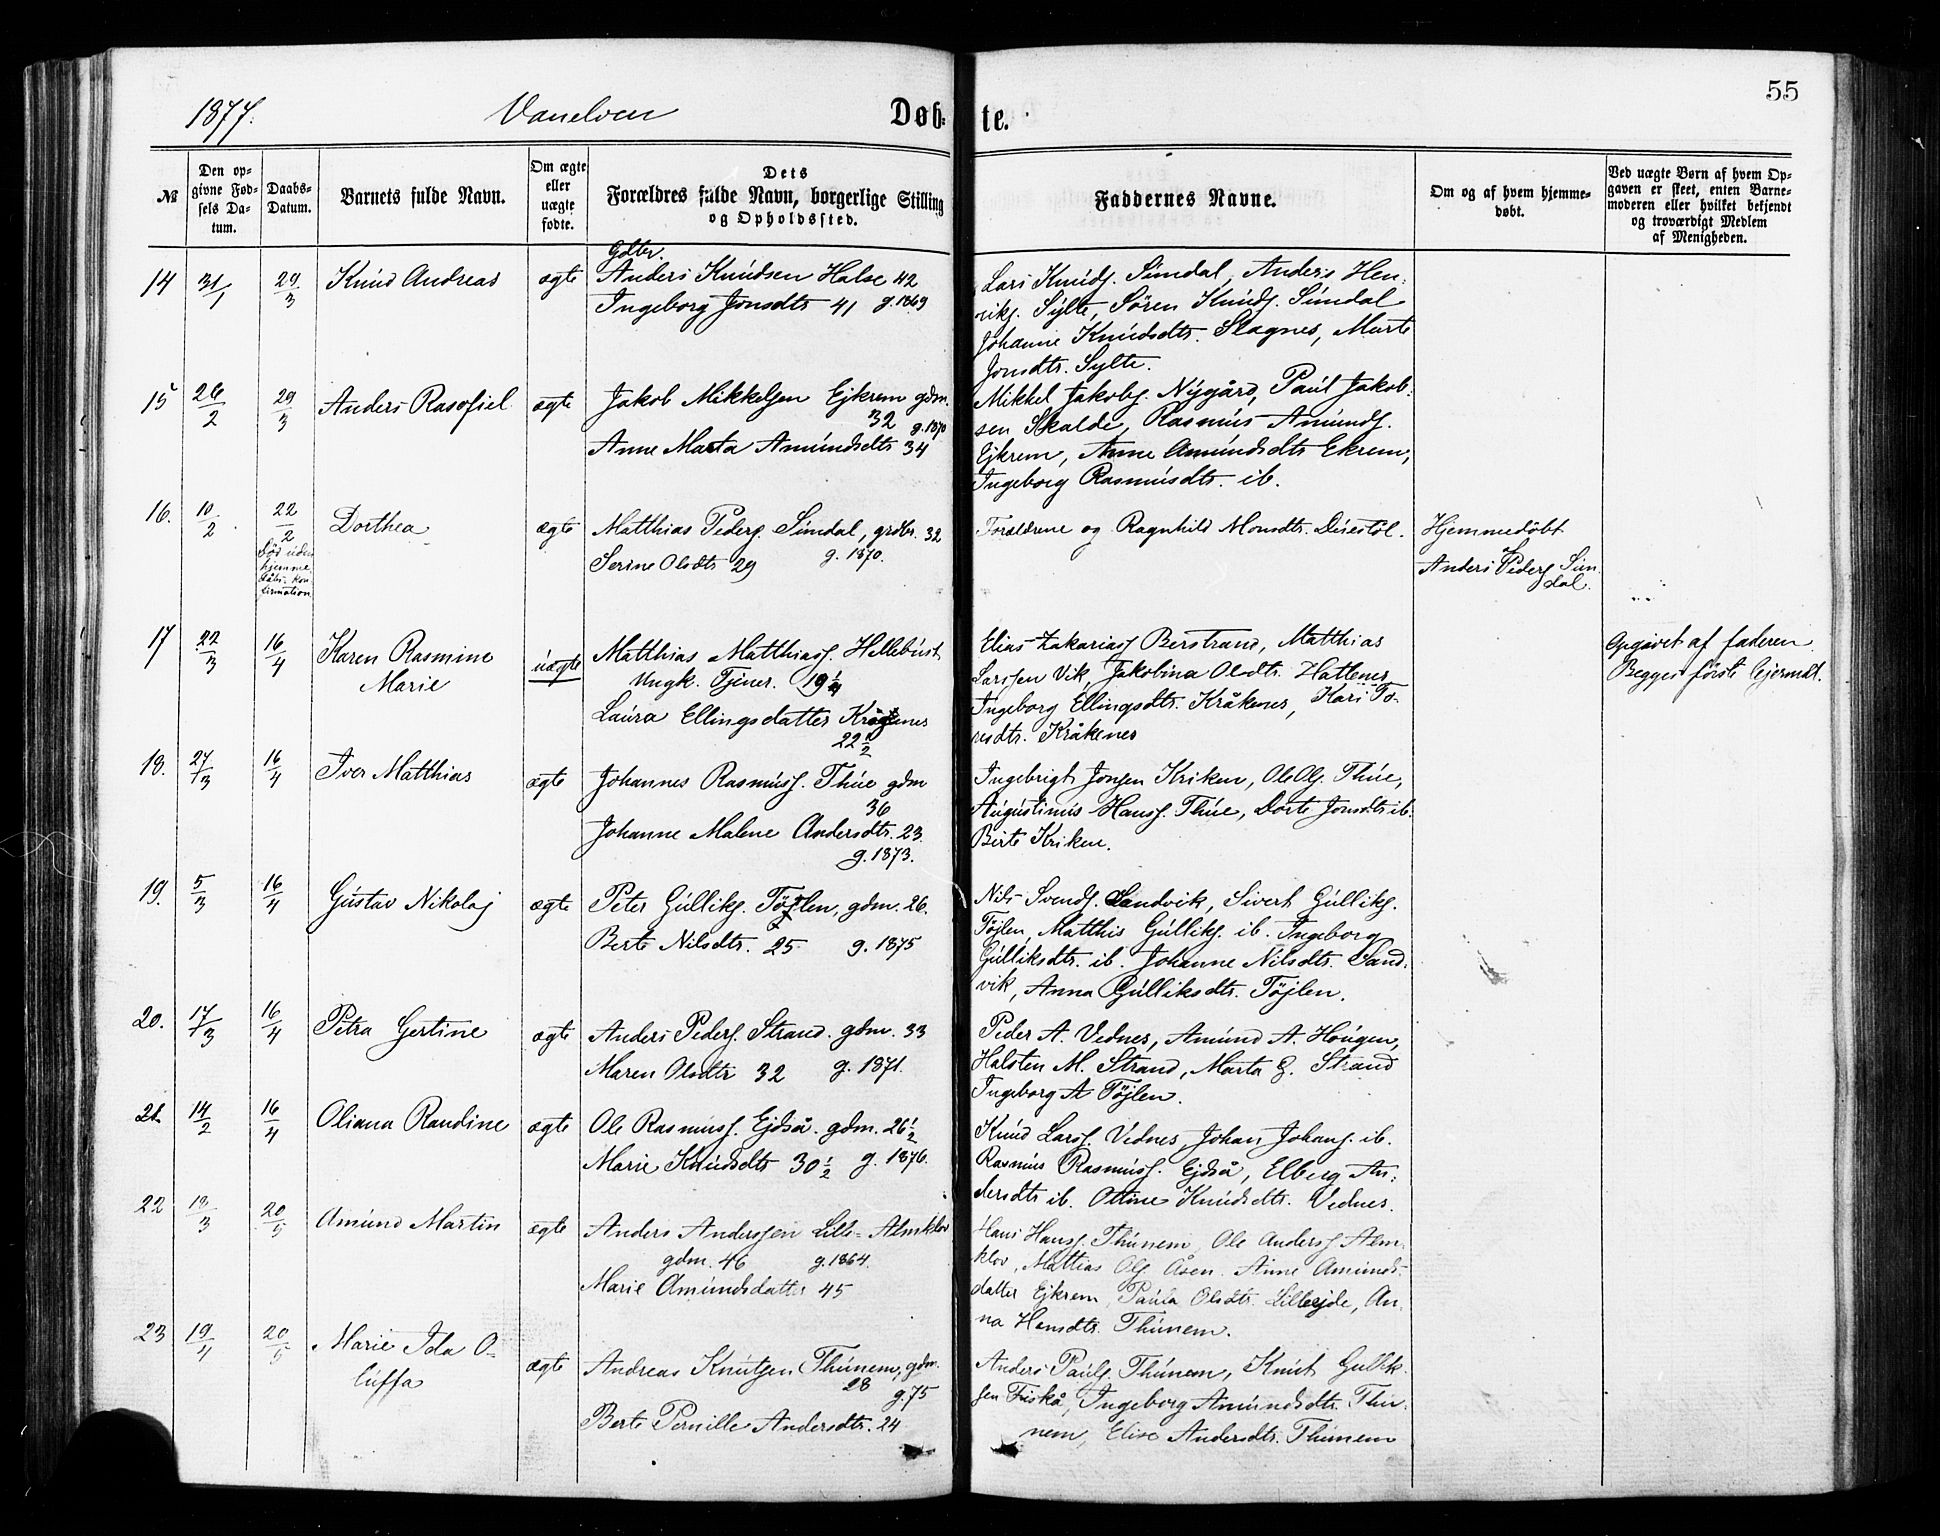 1877. Vanelven Døb- te. 55
№
Den op-
givne Fød-
sels Da-
tum.
Daabs-
Datum.
Barnets fulde Navn.
Om ægte
eller
uægte
fødte.
Dets
Forældres fulde Navn, borgerlige Stilling
og Opholdssted.
Faddernes Navne.
Om og af hvem hjemme-
døbt.
Ved uægte Børn af hvem Op-
gaven er skeet, enten Barne-
moderen eller hvilket bekjendt
og troværdigt Medlem
af Menigheden.
14 31/1 29/3 Knud Andreas ægte
Gdbr.
Anders Knudsen Halse 42
Ingeborg Jonsdtr 41 g. 1869
Lars Knuds. Sundal, Anders Hen-
riks. Sylte, Sören Knuds. Sundal
Johanne Knudsdtr. Slagnes, Marte
Jonsdtr. Sylte.
15 26/2 29/3 Anders Rasofiel ægte
Jakob Mikkelsen Ejkrem gdm.
32 g. 1870
Anne Marta Amundsdtr 34
Mikkel Jakobs. Nygård, Paul Jakob-
sen Skalde, Rasmus Amunds.
Ejkrem, Anne Amundsdtr Ekrem,
Ingeborg Rasmusdtr. ib.
16. 10/2 22/2 Dorthea ægte
Död uden
hjemme
dåbs-kon
firmation
Matthias Peders. Sundal, grdbr. 32
Serine Olsdtr 29 g. 1870.
Forældrene og Ragnhild Monsdtr. Duestöl.
Hjemmedöbt
Anders Peders Sun
dal.
17 22/3 16/4 Karen Rasmine
Marie
uægte
Matthias Matthiass. Hellebust
Ungk. Tjener. 19 1/4
Laura Ellingsdatter Kråkenes
22 1/2
Elias Zakarias Berstrand, Matthias
Larssen Vik, Jakobina Olsdtr. Hatlenes
Ingeborg Ellingsdtr. Kråkenes, Kari To-
resdtr. Kråkenes
Opgivet af faderen.
Begges förste Lejermål.
18. 27/3 16/4 Iver Matthias ægte
Johannes Rasmuss. Thue gdm
36
Johanne Malene Andersdtr. 23
g. 1873.
Ingebrigt Jonsen Kriken, Ole Ols. Thue,
Augustinus Hanss. Thue, Dorte Jonsdtr ib.
Birte Kriken.
19. 5/3 16/4 Gustav Nikolaj ægte
Peter Gulliks. Töjlen, gdm. 26.
Berte Nilsdtr. 25 g. 1875
Nils Svends. Sandvik, Sivert Gulliks.
Töjlen, Matthis Gulliks. ib. Ingeborg
Gulliksdtr. ib. Johanne Nilsdtr. Sand-
vik, Anna Gulliksdtr. Töjlen.
20. 17/3 16/4 Petra Gertine ægte
Anders Peders. Strand. gdm. 33
Maren Olsdtr 32 g. 1871.
Peder A. Vednes, Amund A. Hougen,
Halsten M. Strand, Marta G. Strand
Ingeborg A Töjlen.
21. 14/2 16/4 Oliana Randine ægte
Ole Rasmuss. Ejdså. gdm. 26 1/2
Marie Knudsdtr 30 1/2 g. 1876.
Knud Larss. Vednes, Johan Johans. ib.
Rasmus Rasmuss. Ejdså, Elberg An-
dersdtr ib. Ottine Knudsdtr. Vednes.
22 13/3 20/5 Amund Martin ægte
Anders Anderssen Lille-Almklov
gdm. 46 g. 1864.
Marie Amundsdatter 45
Hans Hanss. Thunem, Ole Anderss Alm-
klov, Mattias Ols. Åsen. Anne Amunds-
datter Ejkrem, Paula Olsdtr. Lillerjde, An-
na Hansdtr. Thunem.
23 19/4 20/5 Marie Ida O-
luffa
ægte
Andreas Knutsen Thunem, gdm.
28 g. 75
Berte Pernille Andersdtr. 24
Anders Pauls. Thunem, Knut Gullik-
sen Fiskå, Ingeborg Amundsdtr. Thu-
nem, Elise Andersdtr. Thunem